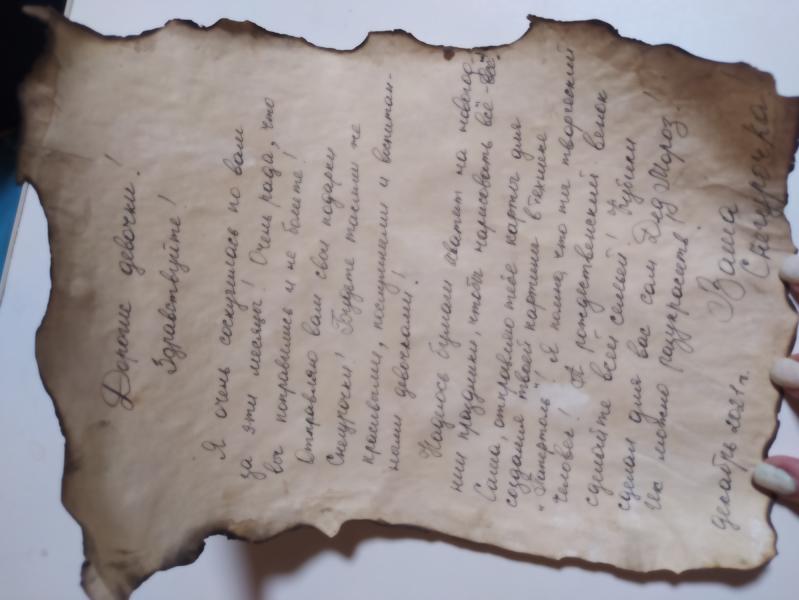 Дорогие девочки!
Здравствуйте!
Я очень соскучилась по вам
за эти месяцы! Очень рада, что
вы поправились и не болите!
Отправляю вам свои подарки
Снегурочки! Будьте такими же
красивыми, послушными и воспитан-
ными девочками!
Надеюсь бумаги хватит на новогод-
ния праздники, чтобы нарисовать всё-всё!
Саша, отправляю тебе картон для
создания твоей картины в технике
"Литерталь"! Я помню, что ты творческий
человек! А рождественский венок
сделайте всей семьёй! Кубики
сделал для вас сам Дед Мороз!
Их можно разукрасить!
Ваша
Снегурочка
декабрь 2021 г.